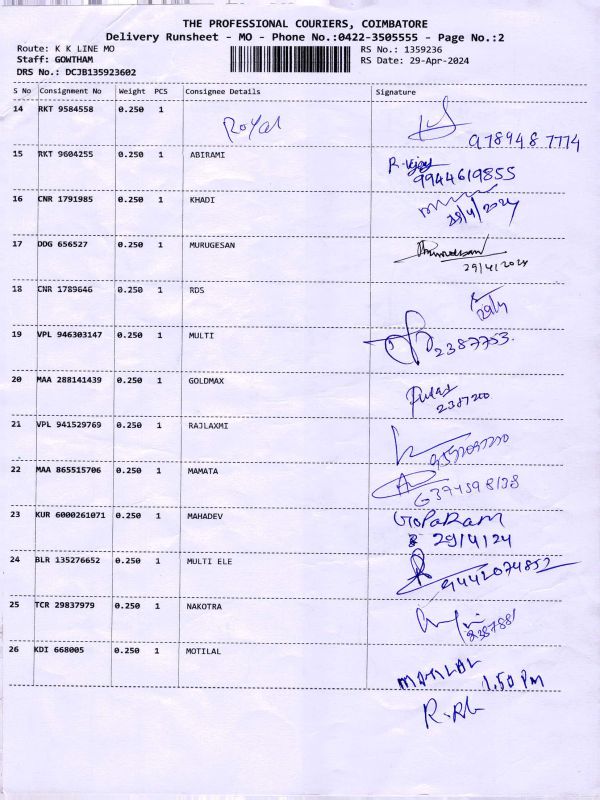 THE PROFESSIONAL COURIERS, COIMBATORE
Delivery Runsheet - MO - Phone No.:0422-3505555 - Page No.:2
Route: K K LINE MO
RS No.: 1359236
Staff: GOWTHAM
RS Date: 29-Apr-2024
DRS No.: DCJB135923602
S No Consignment No Weight PCS Consignee Details Signature
14 RKT 9584558 0.250 1 Royal
9789487774
15 RKT 9604255 0.250 1 ABIRAMI R. Vijay
9944619855
16 CNR 1791985 0.250 1 KHADI
29/4/2024
17 DDG 656527 0.250 1 MURUGESAN Murugesan
29/4/2024
18 CNR 1789646 0.250 1 RDS
29/4
19 VPL 946303147 0.250 1 MULTI 2387753.
20 MAA 288141439 0.250 1 GOLDMAX
2387200
21 VPL 941529769 0.250 1 RAJLAXMI
22 MAA 865515706 0.250 1 MAMATA
23 KUR 6000261071 0.250 1 MAHADEV GOPARAM
29/4/24
24 BLR 135276652 0.250 1 MULTI ELE 9442074852
25 TCR 29837979 0.250 1 NAKOTRA
2387881
26 KDI 668005 0.250 1 MOTILAL
MOTILAL 1.50 PM